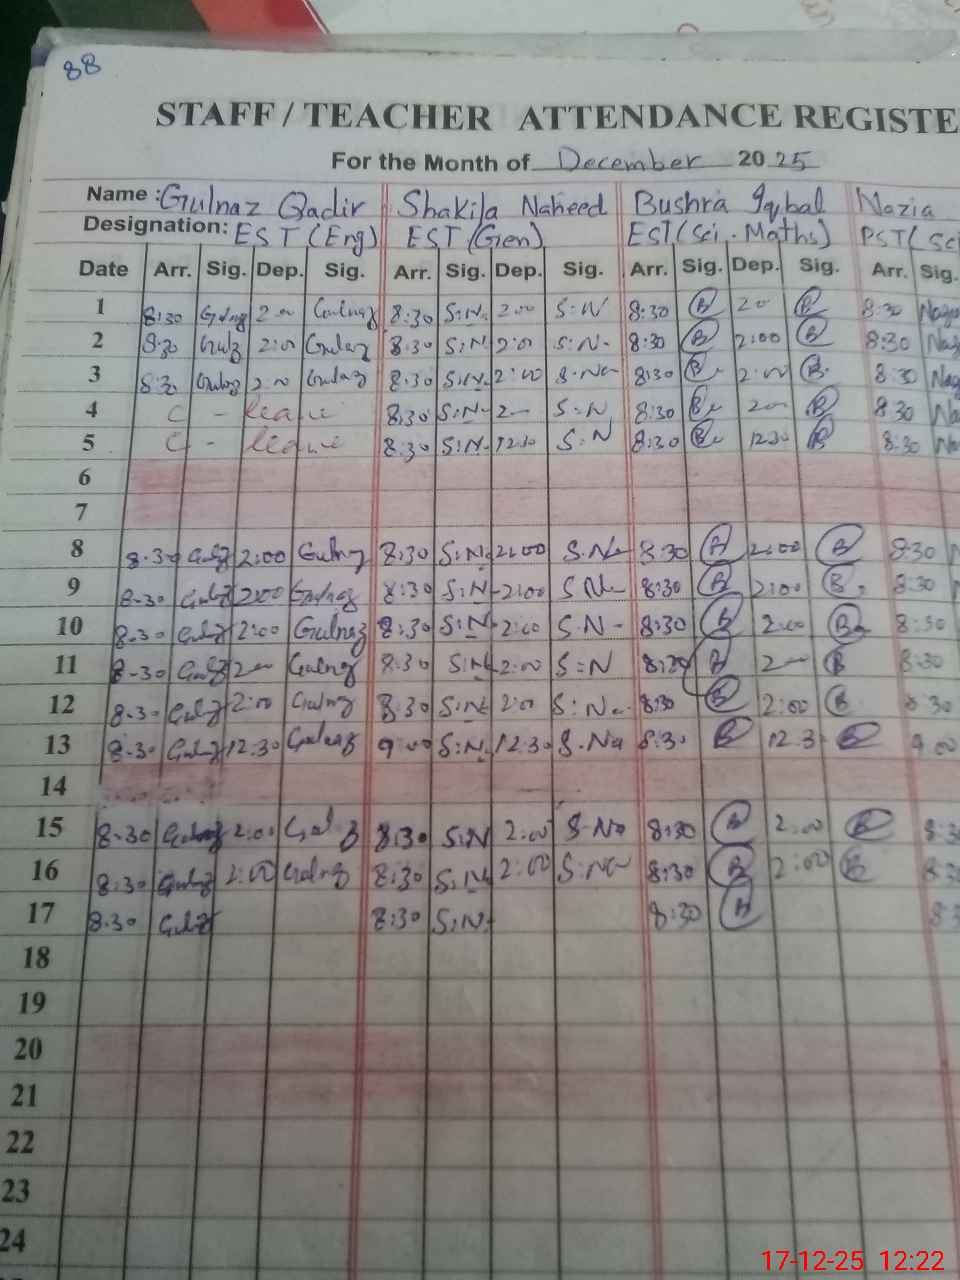 88
STAFF / TEACHER ATTENDANCE REGISTE
For the Month of December 2025
Name : Gulnaz Qadir Shakila Naheed Bushra Iqbal Nazia
Designation: EST (Eng) EST (Gen) EST (Sci. Maths) PST ( Sc
Date Arr. Sig. Dep. Sig. Arr. Sig. Dep. Sig. Arr. Sig. Dep. Sig. Arr. Sig.
1 8:30 2:00 Gulnaz 8:30 S:N. 2:00 S:N 8:30 B 2:00 B 8:30
2 8:30 2:00 8:30 S:N 2:00 S:N- 8:30 B 2:00 B 8:30
3 8:30 2:00 8:30 S:N. 2:00 8:30 B 2:00 B 8:30
4 C - leave 8:30 S:N- 2 S:N 8:30 B 200 B 8:30
5 C - leave 8:30 S:N. 12:30 S:N 8:30 B 12:30 B 8:30
6
7
8 8.30 2:00 8:30 S:N. 2:00 8:30 B 2:00 B 8:30
9 8.30 2:00 8:30 S:N 2:00 8:30 B 2:00 B 8:30
10 8.30 2:00 Gulnaz 8:30 S:N 2:00 S.N- 8:30 B 2:00 B 8:30
11 8-30 8:30 S:N 2:00 S:N 8:30 B B 8:30
12 8.30 2:00 8:30 S:N 2:00 8:30 B 2:00 B 8:30
13 8.30 12.30 9:00 S:N 12.30 S.Na 8:30 B 12.3 B 9.00
14
15 8-30 2:00 8:30 S:N 2:00 S-Na 8:30 B 2:00 B 8:3
16 8:30 2:00 8:30 S:N 2:00 8:30 B 2:00 B 8:3
17 8.30 8:30 S:N. 8:30 B 8:3
18
19
20
21
22
23
24
17-12-25 12:22